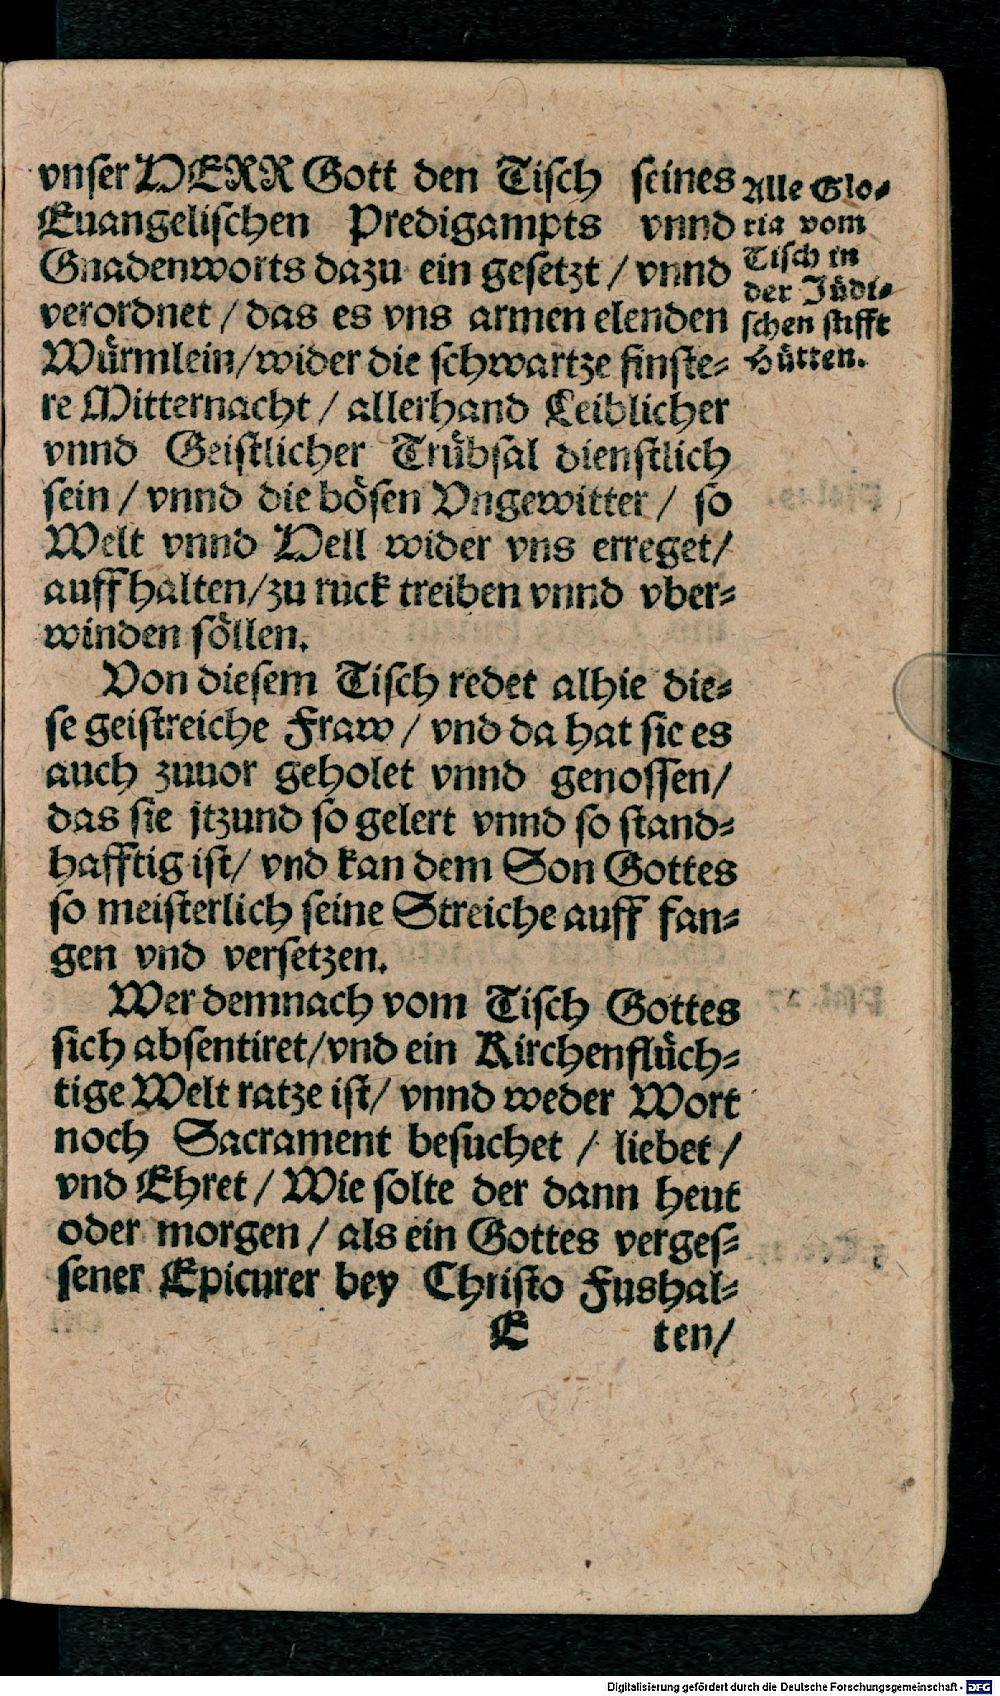 vnser HERR Gott den Tisch seines
Euangelischen Predigampts vnnd
Gnadenworts dazu ein gesetzt / vnnd
verordnet / das es vns armen elenden
Würmlein/wider die schwartze finste=
re Mitternacht / allerhand Leiblicher
vnnd Geistlicher Trübsal dienstlich
sein / vnnd die bösen Vngewitter / so
Welt vnnd Hell wider vns erreget/
auffhalten/zu ruck treiben vnnd vber=
winden söllen.
Von diesem Tisch redet alhie die=
se geistreiche Fraw / vnd da hat sie es
auch zuuor geholet vnnd genossen/
das sie jtzund so gelert vnnd so stand=
hafftig ist/ vnd kan dem Son Gottes
so meisterlich seine Streiche auff fan=
gen vnd versetzen.
Wer demnach vom Tisch Gottes
sich absentiret/vnd ein Kirchenflüch=
tige Welt ratze ist/ vnnd weder Wort
noch Sacrament besuchet / liebet /
vnd Ehret / Wie solte der dann heut
oder morgen / als ein Gottes verges=
sener Epicurer bey Christo Fushal=
E ten/
Alle Glo=
ria vom
Tisch in
der Jüdi=
schen stifft
Hütten.
Digitalisierung gefördert durch die Deutsche Forschungsgemeinschaft - DFG